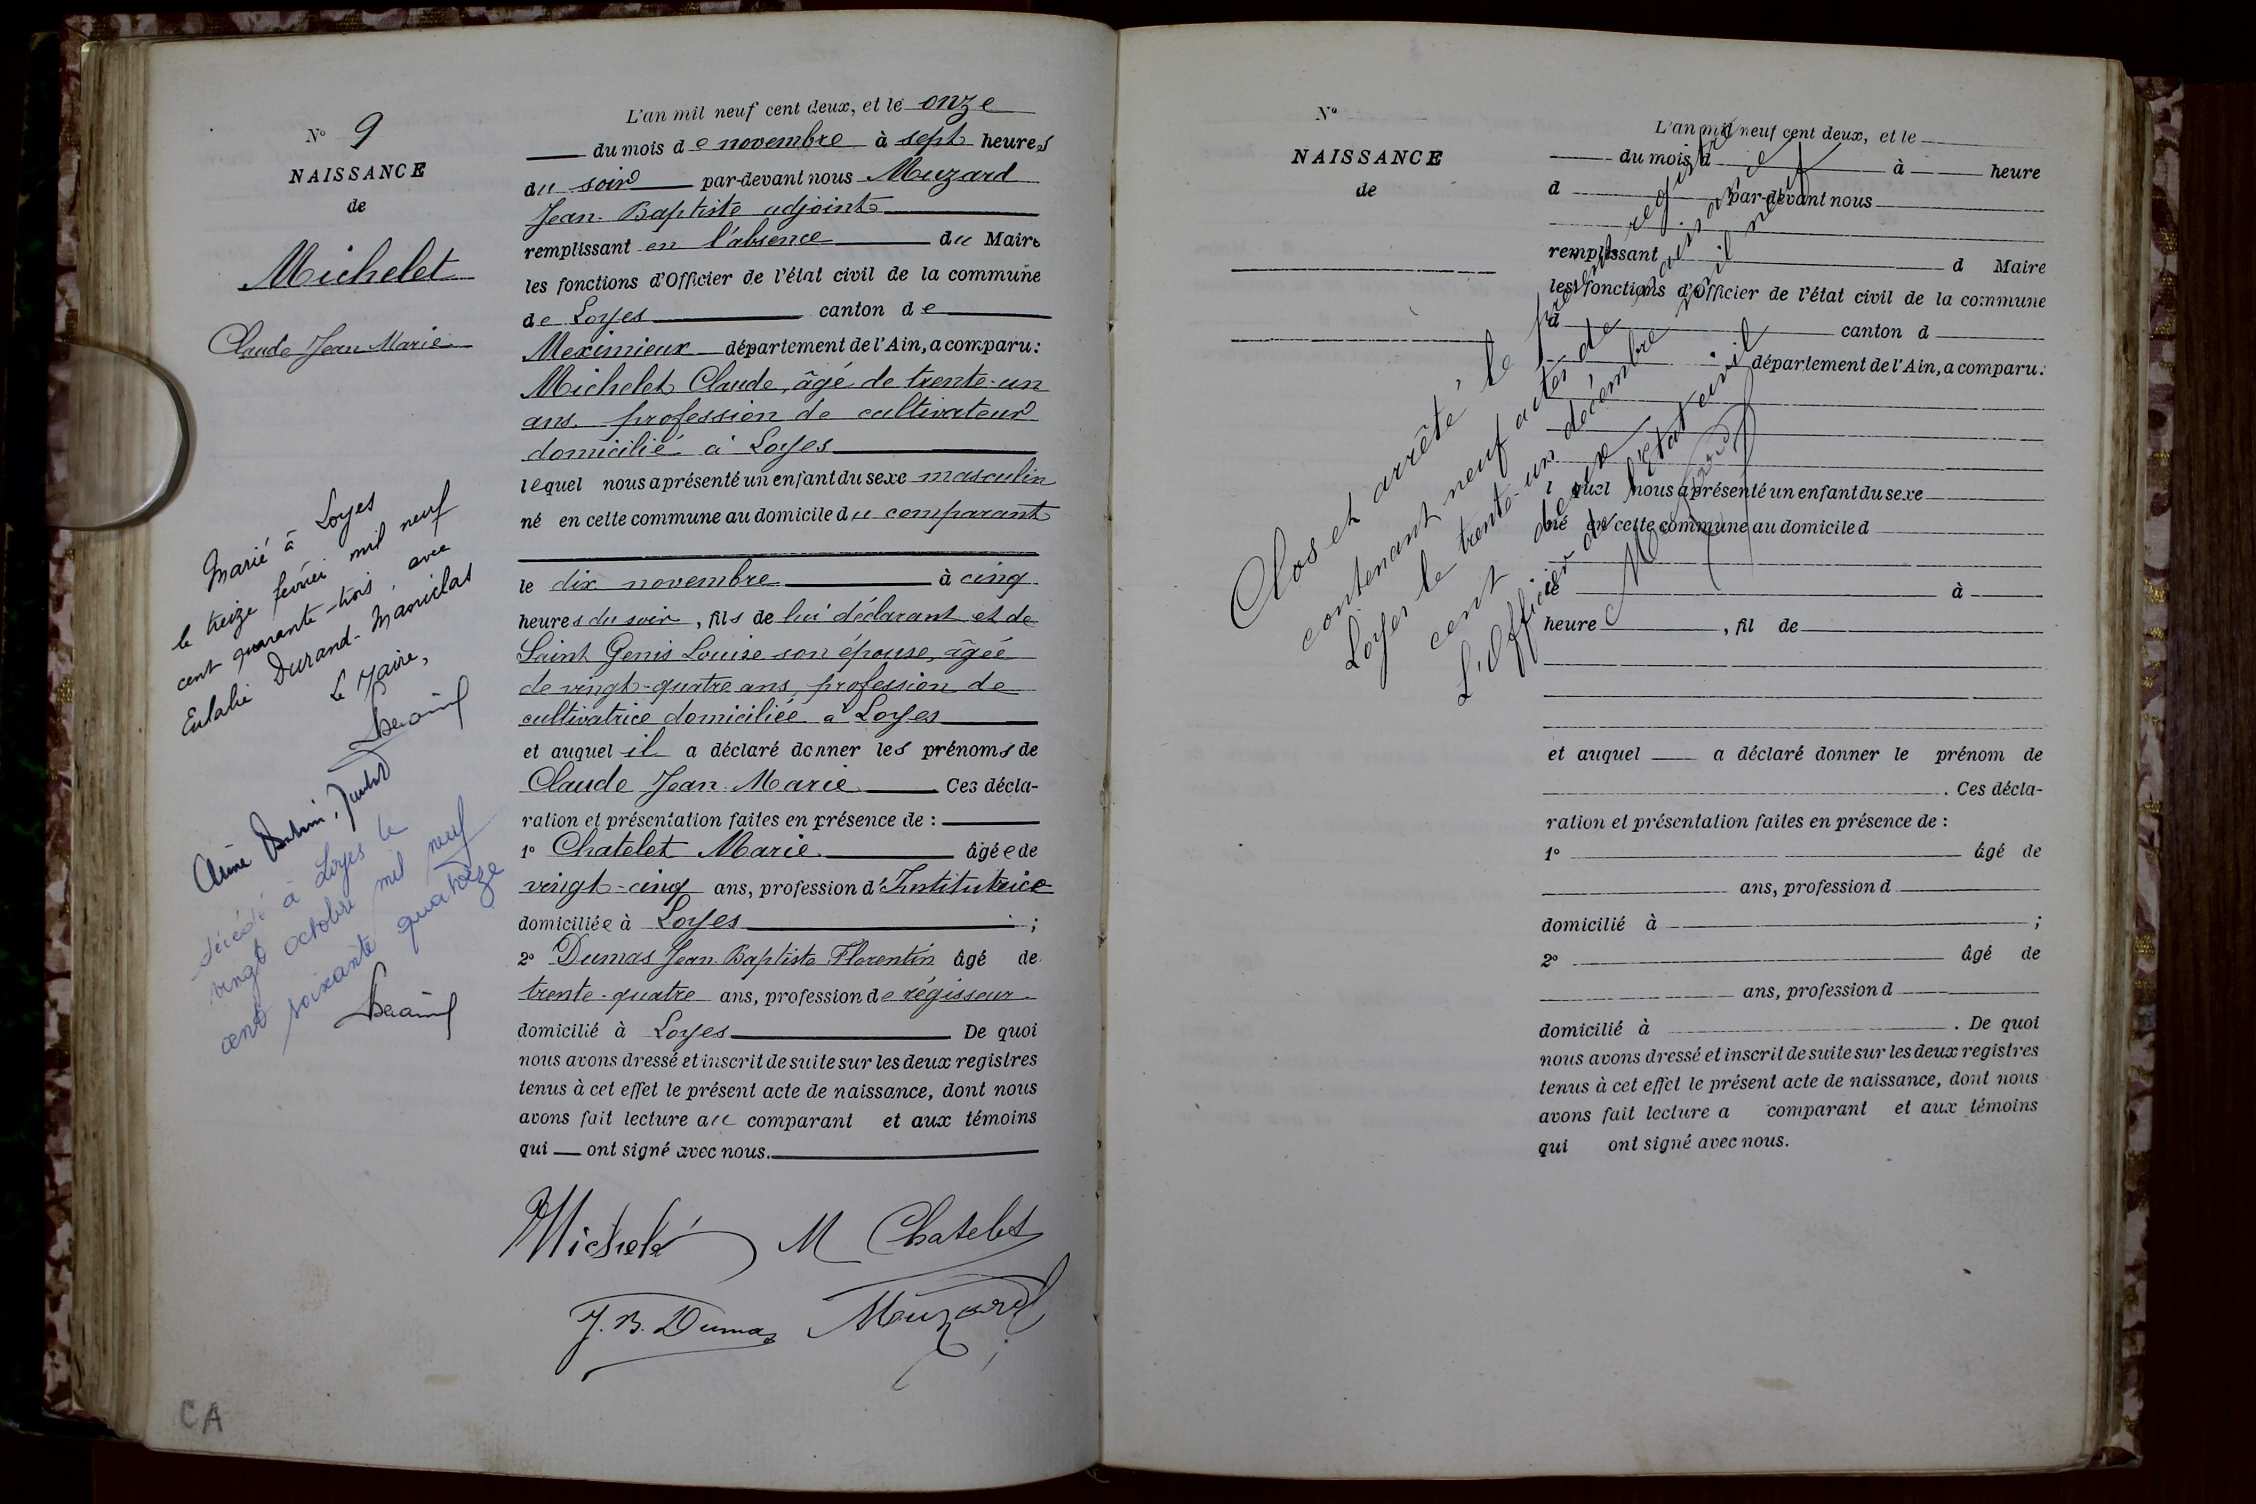 N° 9
NAISSANCE
de
Michelet
Claude Jean Marie
Marié à Loyes
le treize février mil neuf
cent quarante-trois, avec
Eulalie Durand-Maniclas
Le Maire,
Décédé à Loyes le
vingt octobre mil neuf
cent soixante quatorze
CA
L'an mil neuf cent deux, et le onze
du mois de novembre à sept heures
du soir par-devant nous Muzard
Jean-Baptiste adjoint
remplissant en l'absence du Maire
les fonctions d'Officier de l'état civil de la commune
de Loyes canton de
Meximieux département de l'Ain, a comparu:
Michelet Claude, âgé de trente-un
ans, profession de cultivateur
domicilié à Loyes
lequel nous a présenté un enfant du sexe masculin
né en cette commune au domicile du comparant
le dix novembre à cinq
heures du soir, fils de lui déclarant et de
Saint Genis Louise son épouse, âgée
de vingt-quatre ans, profession de
cultivatrice domiciliée à Loyes
et auquel il a déclaré donner les prénoms de
Claude Jean Marie Ces décla-
ration et présentation faites en présence de :
1° Chatelet Marie âgée de
vingt-cinq ans, profession d'Institutrice
domiciliée à Loyes ;
2° Dumas Jean Baptiste Florentin âgé de
trente-quatre ans, profession de régisseur
domicilié à Loyes De quoi
nous avons dressé et inscrit de suite sur les deux registres
tenus à cet effet le présent acte de naissance, dont nous
avons fait lecture au comparant et aux témoins
qui ont signé avec nous.
Michelet M Chatelet
J. B. Dumas Muzard
N°
NAISSANCE
de
L'an mil neuf cent deux, et le
du mois d à heure
d par-devant nous
remplissant d Maire
les fonctions d'Officier de l'état civil de la commune
d canton d
département de l'Ain, a comparu:
l quel nous a présenté un enfant du sexe
né en cette commune au domicile d
le à
heure , fil de
et auquel a déclaré donner le prénom de
. Ces décla-
ration et présentation faites en présence de :
1° âgé de
ans, profession d
domicilié à ;
2° âgé de
ans, profession d
domicilié à . De quoi
nous avons dressé et inscrit de suite sur les deux registres
tenus à cet effet le présent acte de naissance, dont nous
avons fait lecture a comparant et aux témoins
qui ont signé avec nous.
Clos et arrêté le présent registre
contenant neuf actes de naissance
Loyes le trente-un décembre mil neuf
cent deux
L'Officier de l'état civil
Muzard